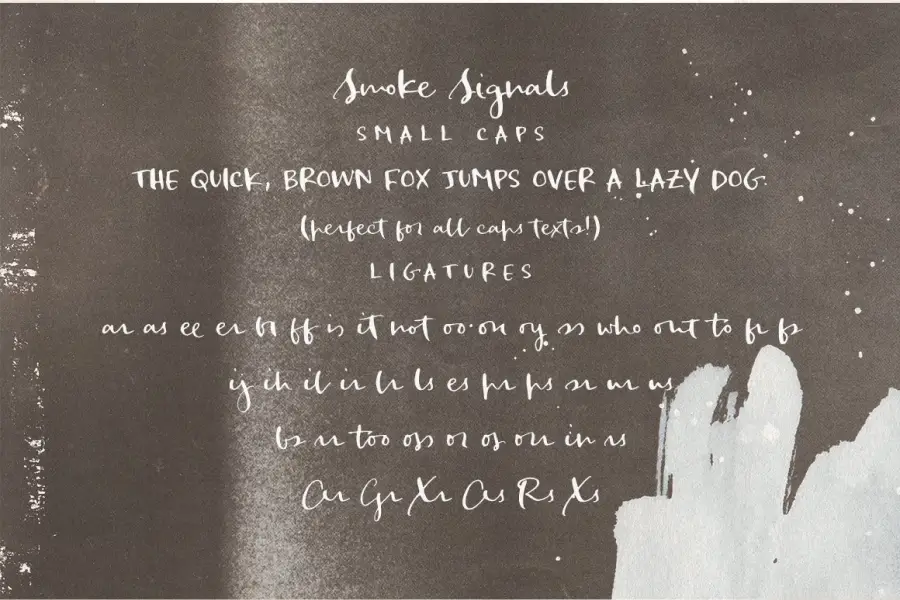 Smoke Signals
SMALL CAPS
THE QUICK, BROWN FOX JUMPS OVER A LAZY DOG.
(perfect for all caps texts!)
LIGATURES
ar as ee er br ff is it not oo on oy ss who out to fr fs
ij ih il ir lr ls es pr ps sr ur us
bs rr too ops or os our in rs